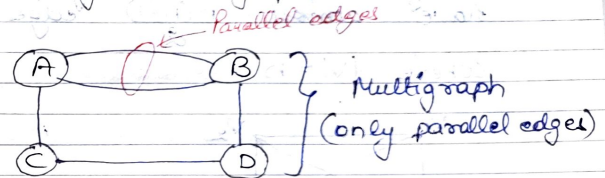 Parallel edges
A
B
Multigraph
(only parallel edges)
C
D